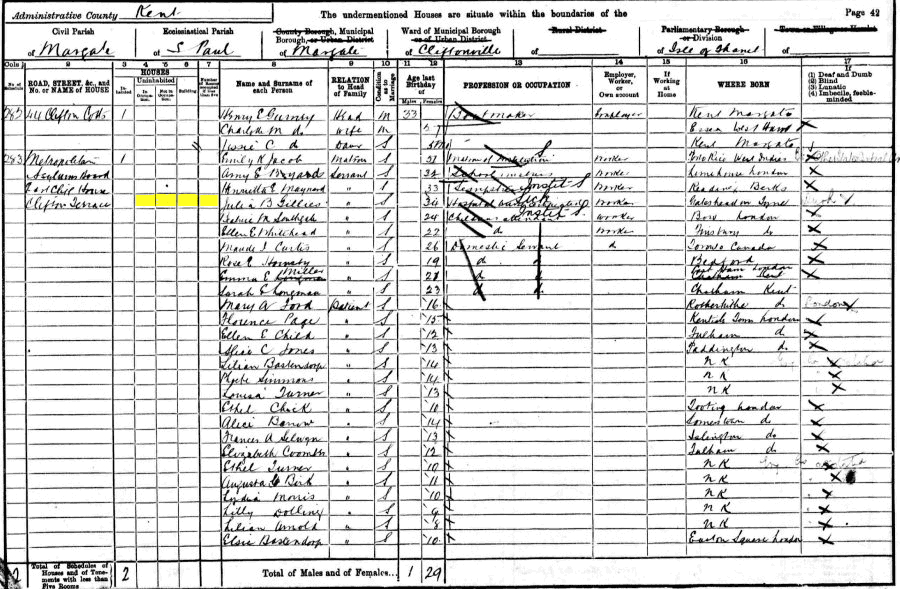 Administrative County Kent The undermentioned Houses are situate within the boundaries of the Page 42
Civil Parish Ecclesiastical Parish County Borough, Municipal Borough, or Urban District Ward of Municipal Borough or of Urban District Rural District Parliamentary Borough or Division Town or Village or Hamlet
of Margate of S Paul of Margate of Cliftonville of of Isle of Thanet of
Cols. 2 3 4 5 6 7 8 9 10 11 12 13 14 15 16 17
ROAD, STREET, &c., and No. or NAME of HOUSE HOUSES Inhabited Uninhabited In Occupation Not in Occupation Building Name and Surname of each Person RELATION to Head of Family Condition as to Marriage Age last Birthday of Males Females PROFESSION OR OCCUPATION Employer, Worker, or Own account If Working at Home WHERE BORN (1) Deaf and Dumb (2) Blind (3) Lunatic (4) Imbecile, feeble-minded
282 44 Clifton Cotts 1 Henry E Gurney Head M 33 Bootmaker Employer Kent Margate
Charlotte M do Wife M Essex West Ham
Jessie C do Daur S Kent Margate
283 Metropolitan 1 Emily K Jacob Matron S Matron of Institution Worker West Indies
Asylums Board Amy E Servant S Worker Limehouse London
East Cliff House Henrietta E Maynard " S 33 Sempstress Instit S Worker Reading Berks
Clifton Terrace Julia B Gillies " S 34 Hospital Worker Gateshead on Tyne
M Southgate " S 24 Childrens attendant Instit S. Worker Bow London
Ellen E Whitehead " S 22 d Worker Finsbury do
Maude I Curtis " S 26 Domestic Servant d Toronto Canada
Rose E Hornsby " S 19 d d Bedford
Emma E Longman Miller " S 21 d d East Ham London Chatham Kent
Sarah E Longman " S 23 d d Chatham Kent
Mary A Ford Patient S 16 Rotherhithe do London
Florence Page " S 15 Kentish Town London
Ellen E Child " S 12 Fulham do
Alice C Jones " S 13 Paddington do
Lilian Bastendorp " S 14 N K
Phoebe Simmons " S 14 N K
Louisa Turner " S 13 N K
Ethel Chick " S 10 Tooting London
Alice Barrow " S 14 Somerstown do
Frances A Selwyn " S 13 Islington do
Elizabeth Coombs " S 12 Fulham do
Ethel Turner " S 10 N K
Augusta " S 11 N K
Lydia Morris " S 10 N K
Lilly Dolling " S 9 N K
Lilian Arnold " S 8 N K
Elsie Bastendorp " S 10 Euston Square London
2 Total of Schedules of Houses and of Tenements with less than Five Rooms 2 Total of Males and of Females... 1 29